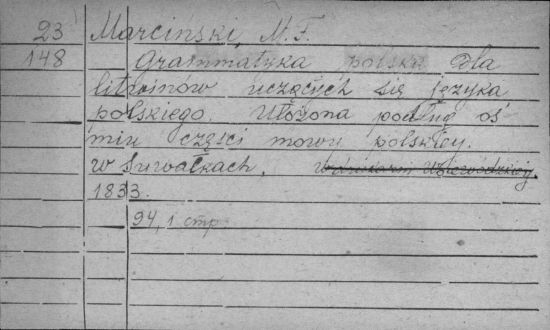 23 Marciński, M.F.
148 Grammatyka polska dla
litwinów uczących się języka
polskiego. Ułożona podług oś
miu części mowy polskiey.
w Suwałkach, w drukarni Woiewódzkiey,
1833.
94, 1 стр